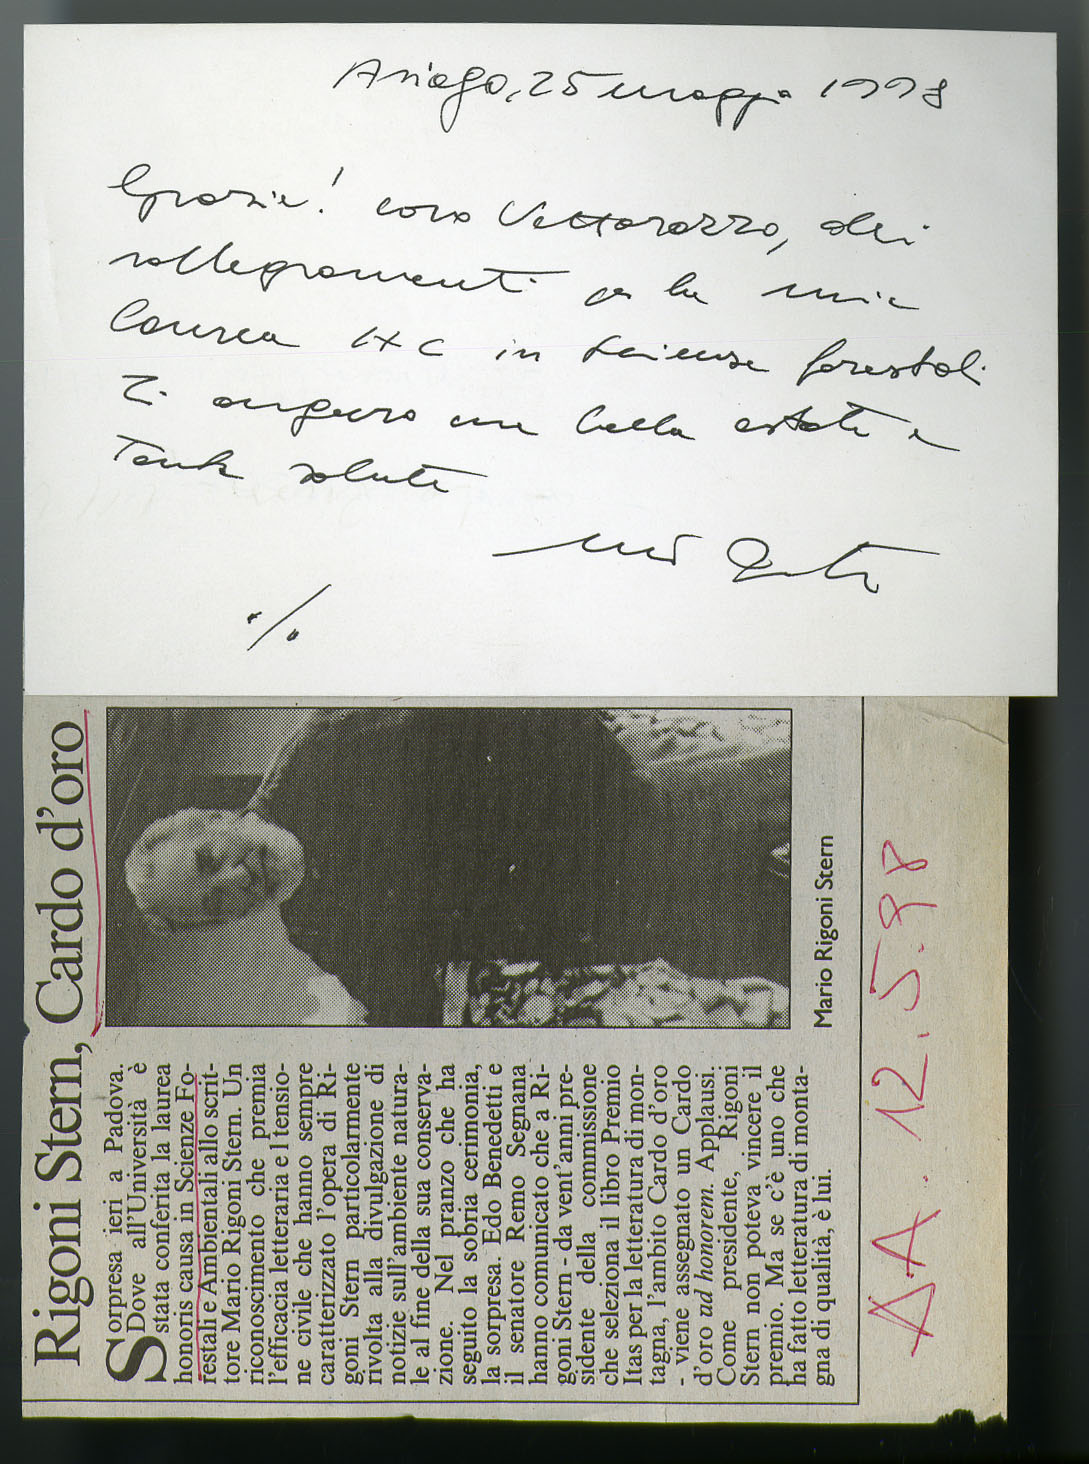 Asiago, 25 maggio 1998
Grazie! caro Vettorazzo, dei
rallegramenti per la mia
laurea H C in Scienze forestali
Ti auguro una bella estate e
tanta salute
./.
Rigoni Stern, Cardo d'oro
Sorpresa ieri a Padova.
Dove all'Università è
stata conferita la laurea
honoris causa in Scienze Fo-
restali e Ambientali allo scrit-
tore Mario Rigoni Stern. Un
riconoscimento che premia
l'efficacia letteraria e l tensio-
ne civile che hanno sempre
caratterizzato l'opera di Ri-
goni Stern particolarmente
rivolta alla divulgazione di
notizie sull'ambiente natura-
le al fine della sua conserva-
zione. Nel pranzo che ha
seguito la sobria cerimonia,
la sorpresa. Edo Benedetti e
il senatore Remo Segnana
hanno comunicato che a Ri-
goni Stern - da vent'anni pre-
sidente della commissione
che seleziona il libro Premio
Itas per la letteratura di mon-
tagna, l'ambito Cardo d'oro
- viene assegnato un Cardo
d'oro ad honorem. Applausi.
Come presidente, Rigoni
Stern non poteva vincere il
premio. Ma se c'è uno che
ha fatto letteratura di monta-
gna di qualità, è lui.
Mario Rigoni Stern
AA. 12.5.98